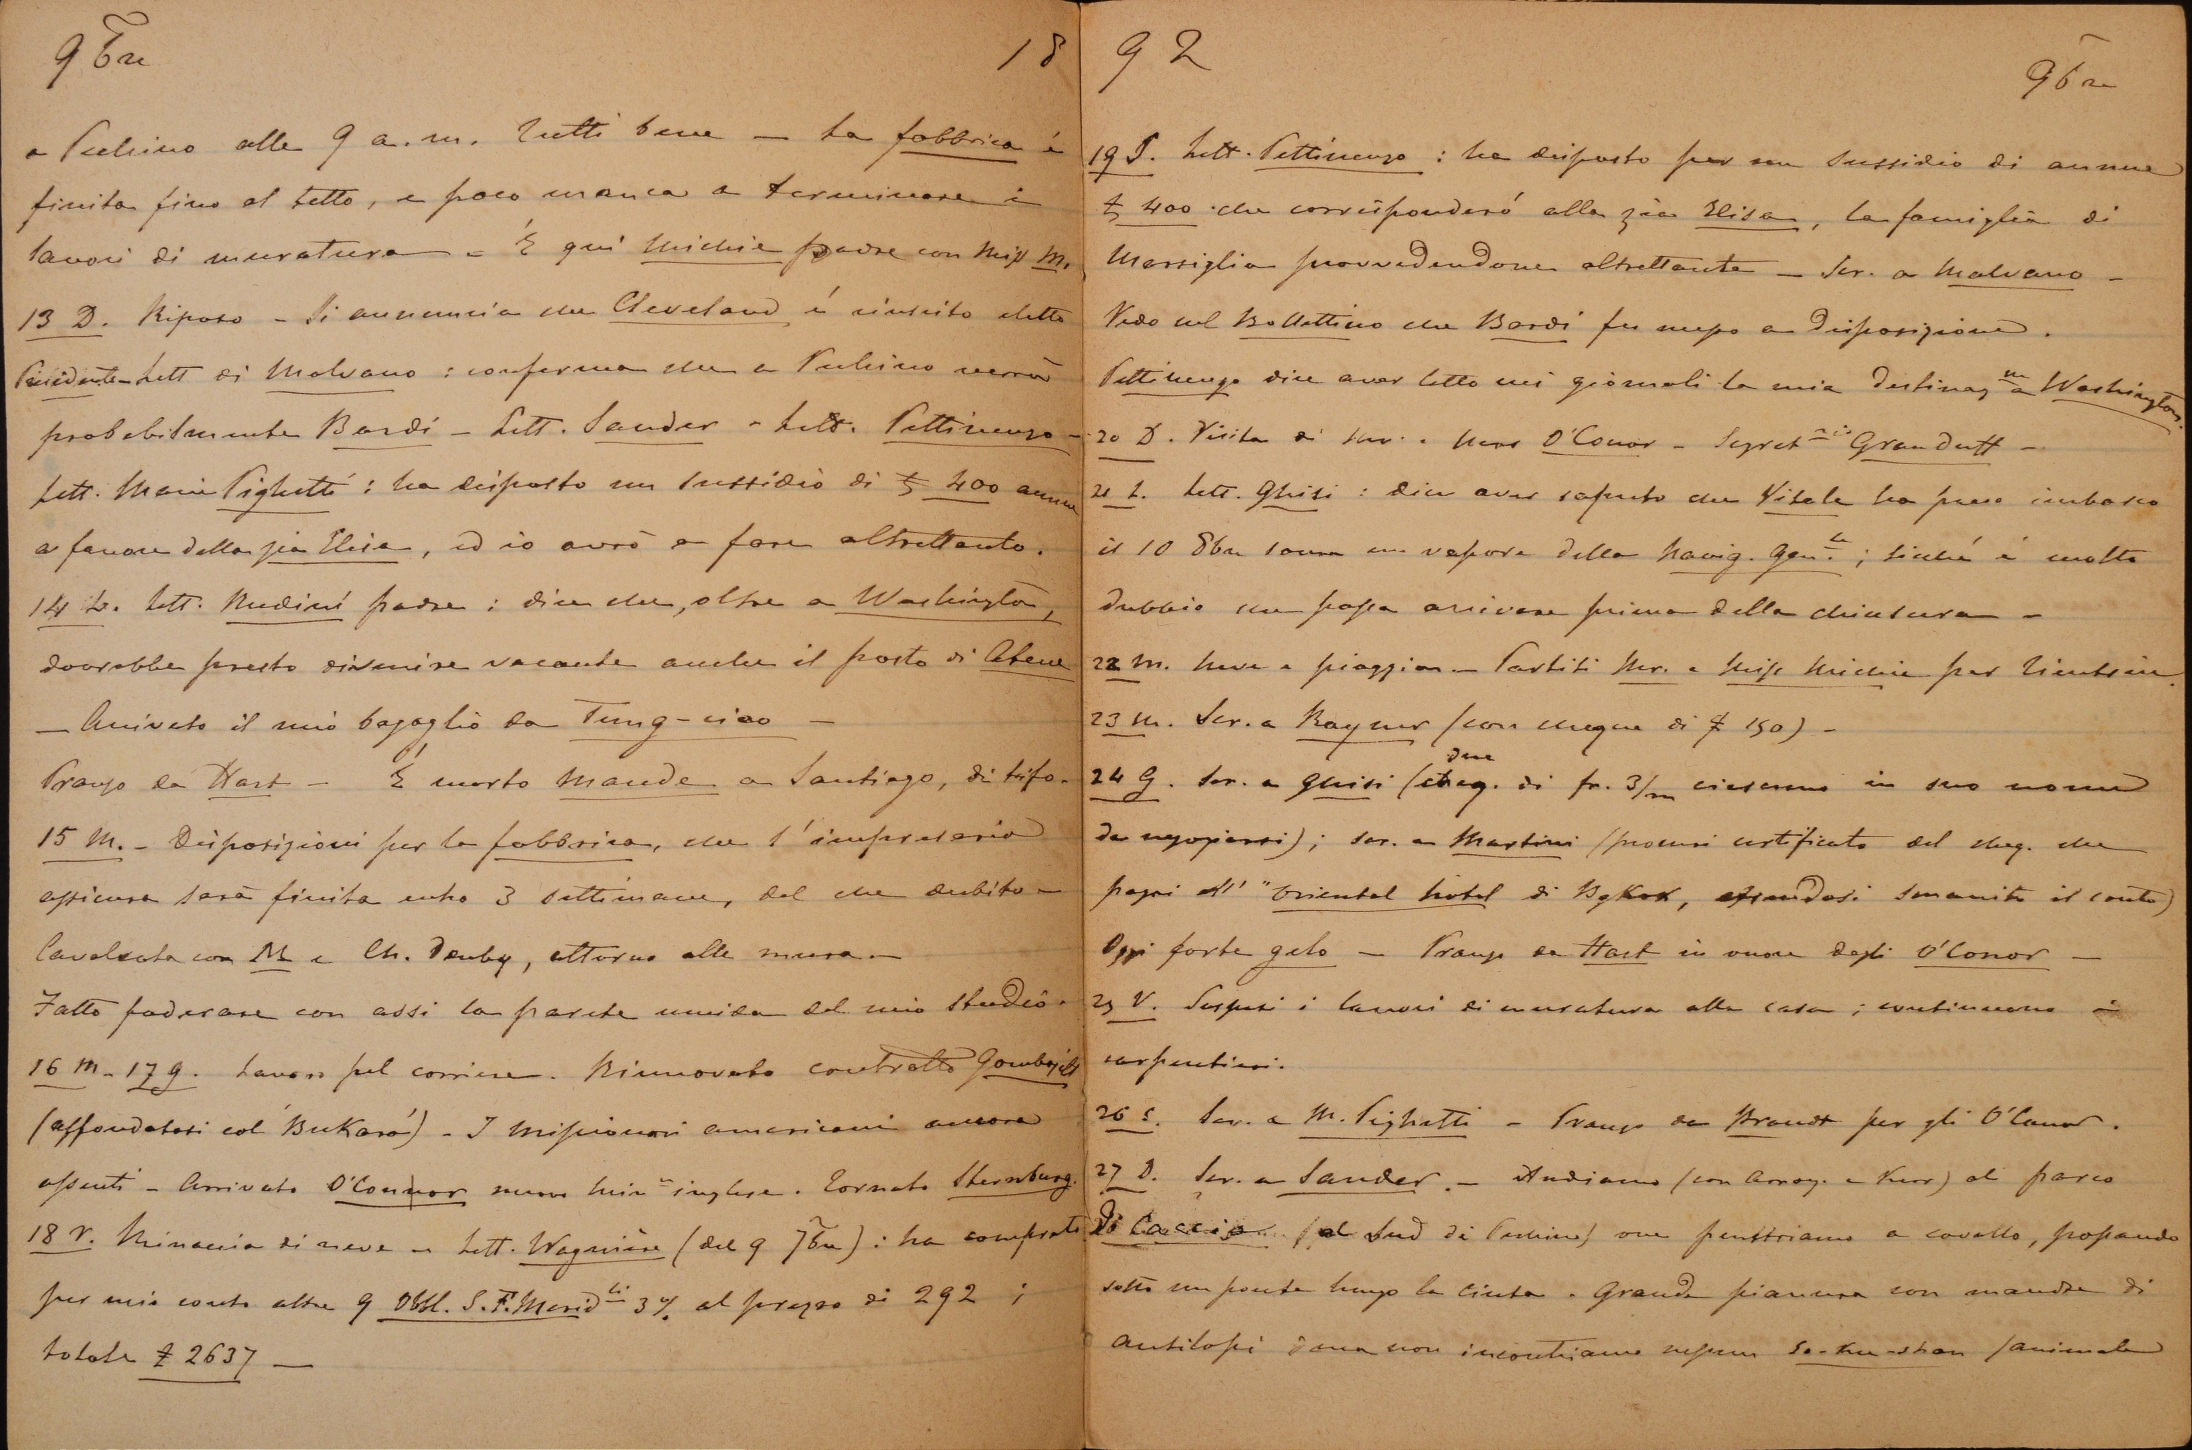 9bre 18
a Pechino alle 9 a.m. Tutti bene — La fabbrica é
finita fino al tetto, e poco manca a terminare i
lavori di muratura — É qui Michie padre con Miss M.
13 D. Riposo — Si annuncia che Cleveland é riuscito eletto
Presidente — Lett di Malvano : conferma che a Pechino verrà
probabilmente Bardi — Lett. Sander — Lett. Pettinengo —
Lett. Maria Pighetti : ha disposto un sussidio di £ 400 annue
a favore della zia Elisa, ed io avrò a fare altrettanto.
14 L. Lett. Rudiní padre : dice che, oltre a Washington,
dovrebbe presto divenire vacante anche il posto di Atene
— Arrivato il mio bagaglio da Tung-ciao —
Pranzo da Hart — É morto Maude a Santiago, di tifo.
15 M. — Disposizioni per la fabbrica, che l'impresario
assicura sarà finita entro 3 settimane, del che dubito —
Cavalcata con M e Ch. Denby, attorno alle mura. —
Fatto foderare con assi la parete umida del mio studio.
16 M. — 17 G. Lavoro pel corriere. Rinnovato contratto
(affondatosi col Bukará) — I missionari americani ancora
assenti — Arrivato O'Connor nuovo Min. inglese. Tornato Sternburg.
18 V. Minaccia di neve — Lett. Wagnière (del 9 7bre) : ha comprato
per mio conto altre 9 Obbl. S.F. Merid.li 3% al prezzo di 292 ;
totale £ 2637 —
92 9bre
19 S. Lett. Pettinengo : ha disposto per un sussidio di annue
£ 400 che corrisponderó alla zia Elisa, la famiglia di
Marsiglia provvedendone altrettante — Scr. a Malvano —
Vedo nel Bollettino che Bardi fu messo a disposizione.
Pettinengo dice aver letto nei giornali la mia destinaz.ne a Washington.
20 D. Visita di Mr. e Mrs O'Conor — Segret.rio Granduff —
21 L. Lett. Ghisi : dice aver saputo che Vitale ha preso imbarco
il 10 8bre sovra un vapore della Navig. Gen.le ; sicché é molto
dubbio che possa arrivare prima della chiusura —
22 M. Neve e pioggia — Partiti Mr. e Miss Michie per Tientsin.
23 M. Scr. a Rayner (con cheque di £ 150) —
24 G. Scr. a Ghisi (due cheq. di fr. 3/m ciascuno in suo nome
da negoziarsi) ; scr. a Martini (procuri certificato del cheq. che
pagai all' "Oriental hotel di Bgkok, essendosi smarrito il conto)
Oggi forte gelo — Pranzo da Hart in onore degli O'Conor —
25 V. Sospesi i lavori di muratura alla casa ; continuano i
carpentieri.
26 S. Scr. a M. Pighetti — Pranzo da Brandt per gli O'Conor.
27 D. Scr. a Sander. — Andiamo (con Arroy. e Kerr) al parco
di Caccia (al Sud di Pechino) ove penetriamo a cavallo, passando
sotto un ponte lungo la cinta. Grande pianura con mandre di
antilopi ; ma non incontriamo nessun animale